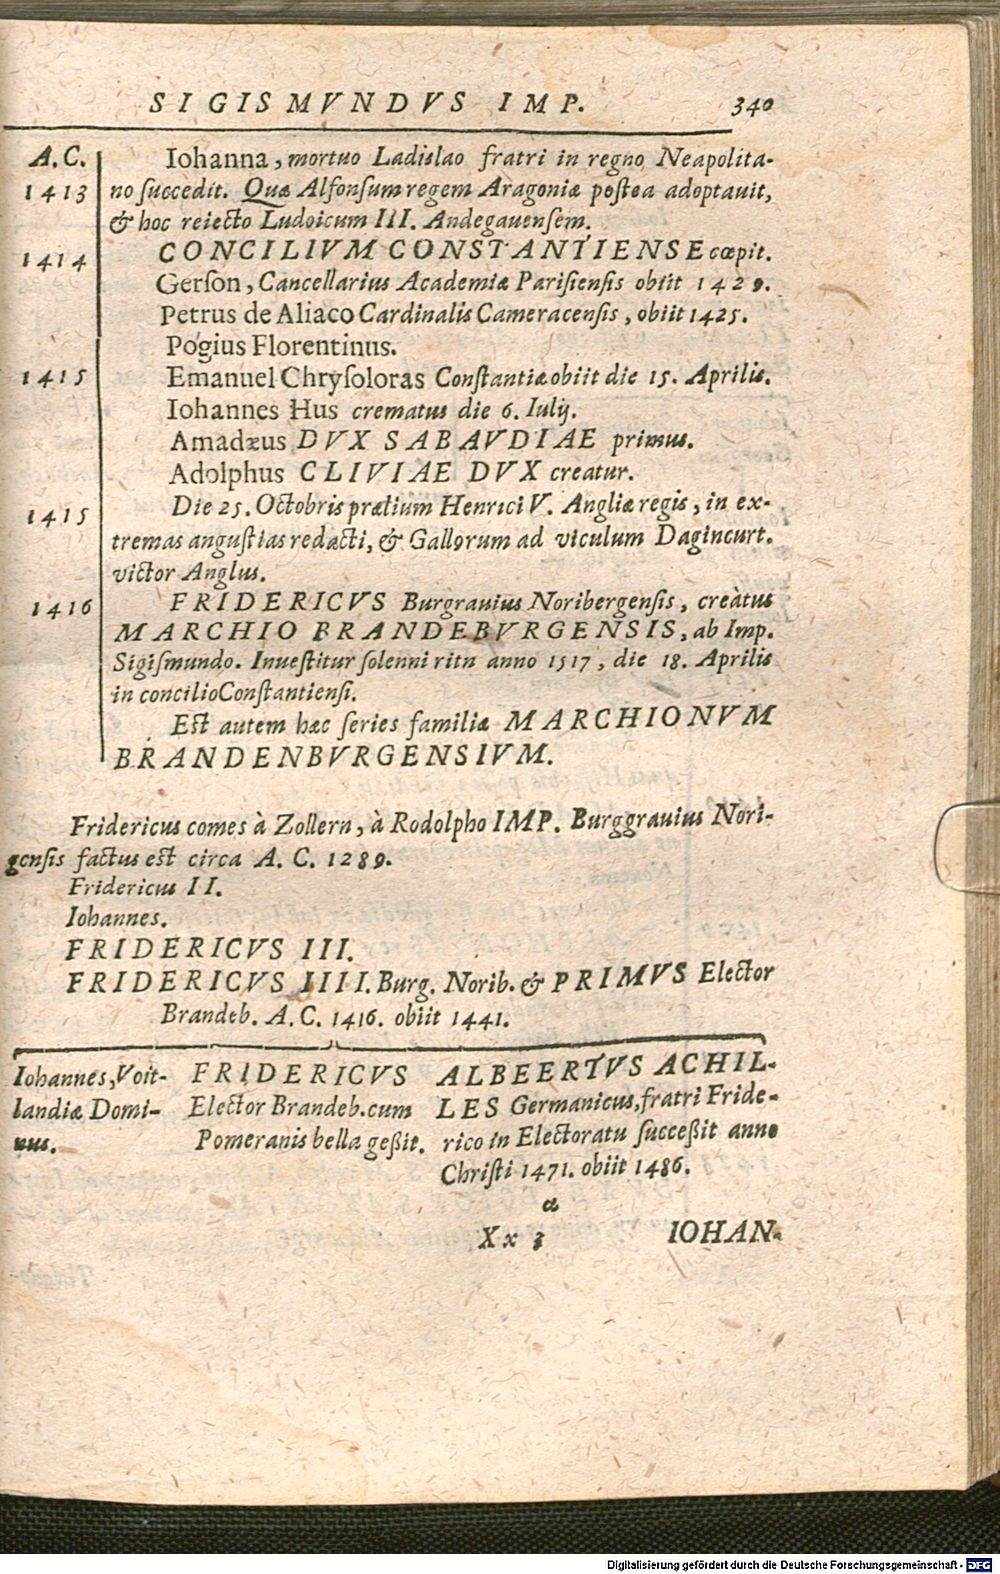 SIGISMVNDVS IMP. 340
A. C. Iohanna, mortuo Ladislao fratri in regno Neapolita-
1413 no succedit. Quæ Alfonsum regem Aragoniæ postea adoptauit,
& hoc reiecto Ludoicum III. Andegauensem.
1414 CONCILIVM CONSTANTIENSE cœpit.
Gerson, Cancellarius Academiæ Parisiensis obiit 1429.
Petrus de Aliaco Cardinalis Cameracensis, obiit 1425.
Pogius Florentinus.
1415 Emanuel Chrysoloras Constantiæ obiit die 15. Aprilis.
Iohannes Hus crematus die 6. Iulij.
Amadæus DVX SABAVDIAE primus.
Adolphus CLIVIAE DVX creatur.
1415 Die 25. Octobris prælium Henrici V. Angliæ regis, in ex-
tremas angustias redacti, & Gallorum ad viculum Dagincurt.
victor Anglus.
1416 FRIDERICVS Burgrauius Noribergensis, creàtus
MARCHIO BRANDEBVRGENSIS, ab Imp.
Sigismundo. Inuestitur solenni ritu anno 1517, die 18. Aprilis
in concilio Constantiensi.
Est autem hæc series familiæ MARCHIONVM
BRANDENBVRGENSIVM.
Fridericus comes à Zollern, à Rodolpho IMP. Burggrauius Nori-
gensis factus est circa A. C. 1289.
Fridericus II.
Iohannes.
FRIDERICVS III.
FRIDERICVS IIII. Burg. Norib. & PRIMVS Elector
Brandeb. A. C. 1416. obiit 1441.
Iohannes, Voit-
landiæ Domi-
nus.
FRIDERICVS
Elector Brandeb. cum
Pomeranis bella geßit.
ALBEERTVS ACHIL-
LES Germanicus, fratri Fride-
rico in Electoratu succeßit anno
Christi 1471. obiit 1486.
a
Xx 3 IOHAN-
Digitalisierung gefördert durch die Deutsche Forschungsgemeinschaft - DFG